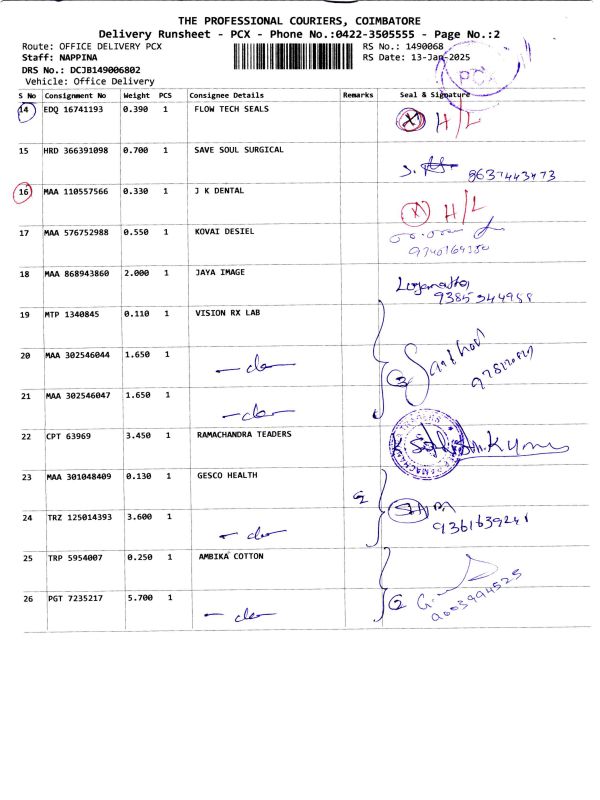 THE PROFESSIONAL COURIERS, COIMBATORE
Delivery Runsheet - PCX - Phone No.:0422-3505555 - Page No.:2
Route: OFFICE DELIVERY PCX RS No.: 1490068
Staff: NAPPINA RS Date: 13-Jan-2025
DRS No.: DCJB149006802
Vehicle: Office Delivery
PCX
S No Consignment No Weight PCS Consignee Details Remarks Seal & Signature
14 EDQ 16741193 0.390 1 FLOW TECH SEALS X H/L
15 HRD 366391098 0.700 1 SAVE SOUL SURGICAL
16 MAA 110557566 0.330 1 J K DENTAL X H/L
17 MAA 576752988 0.550 1 KOVAI DESIEL
18 MAA 868943860 2.000 1 JAYA IMAGE
19 MTP 1340845 0.110 1 VISION RX LAB
20 MAA 302546044 1.650 1
21 MAA 302546047 1.650 1
22 CPT 63969 3.450 1 RAMACHANDRA TEADERS
23 MAA 301048409 0.130 1 GESCO HEALTH
24 TRZ 125014393 3.600 1
25 TRP 5954007 0.250 1 AMBIKA COTTON
26 PGT 7235217 5.700 1